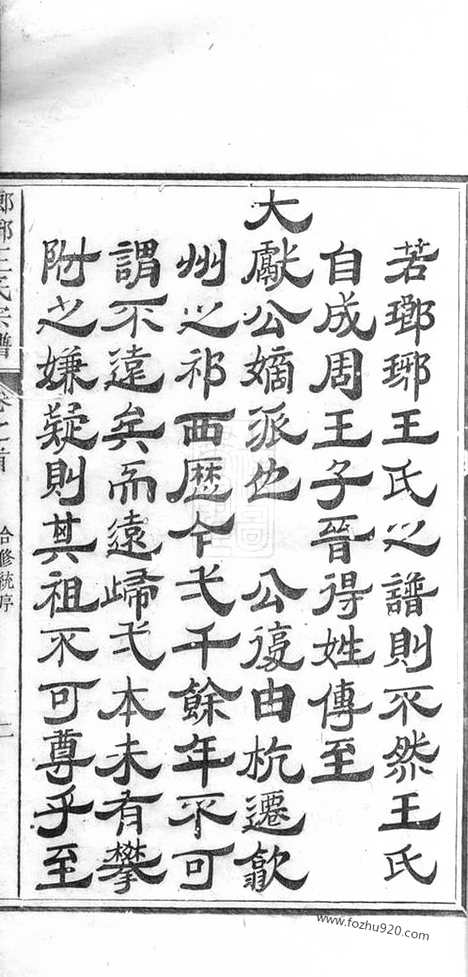 若瑯琊王氏之譜則不然王氏
自成周王子晉得姓傳至
大獻公嫡派也 公復由杭遷歙
州之祁西歷今弌千餘年不可
謂不遠矣而遠歸弌本未有攀
附之嫌疑則其祖不可尊乎至
瑯琊王氏宗譜 卷之首 合修統序 二
www.fozhu920.com